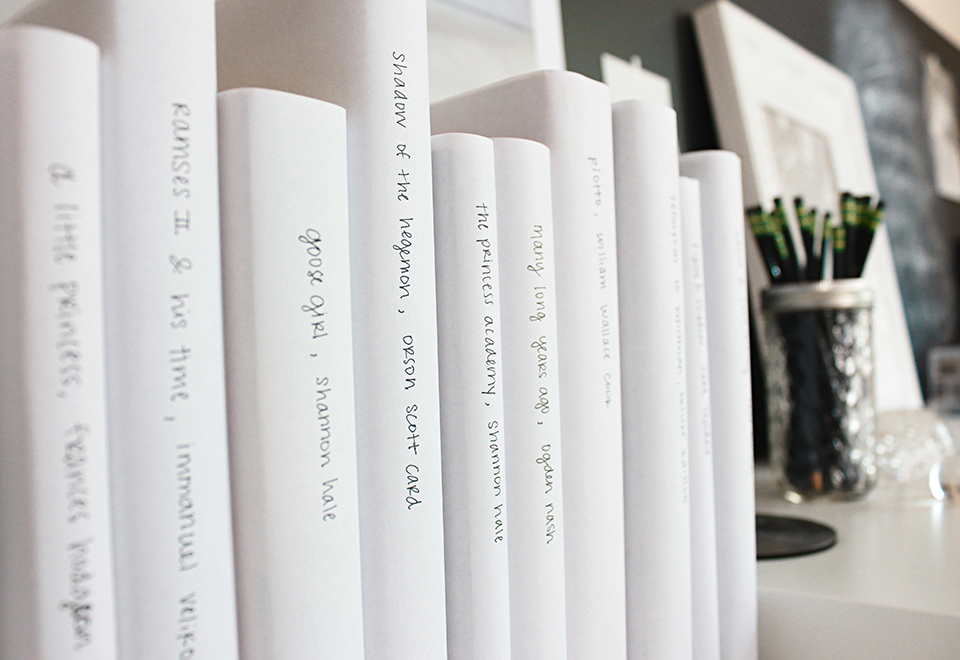 a little princess, frances hodgson
Ramses II & his time, immanuel Veliko
goose girl, shannon hale
shadow of the hegemon, orson scott card
the princess academy, shannon hale
many long years ago, ogden nash
plotto, william wallace cook